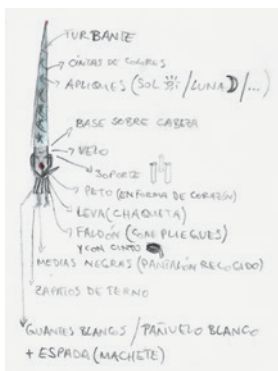 TURBANTE
CINTAS DE COLORES
APLIQUES (SOL /LUNA /...)
BASE SOBRE CABEZA
VELO
SOPORTE
PETO (EN FORMA DE CORAZÓN)
LEVA (CHAQUETA)
FALDÓN (CON PLIEGUES)
Y CON CINTO
MEDIAS NEGRAS (PANTALÓN RECOGIDO)
ZAPATOS DE TERNO
GUANTES BLANCOS / PAÑUELO BLANCO
+ ESPADA (MACHETE)